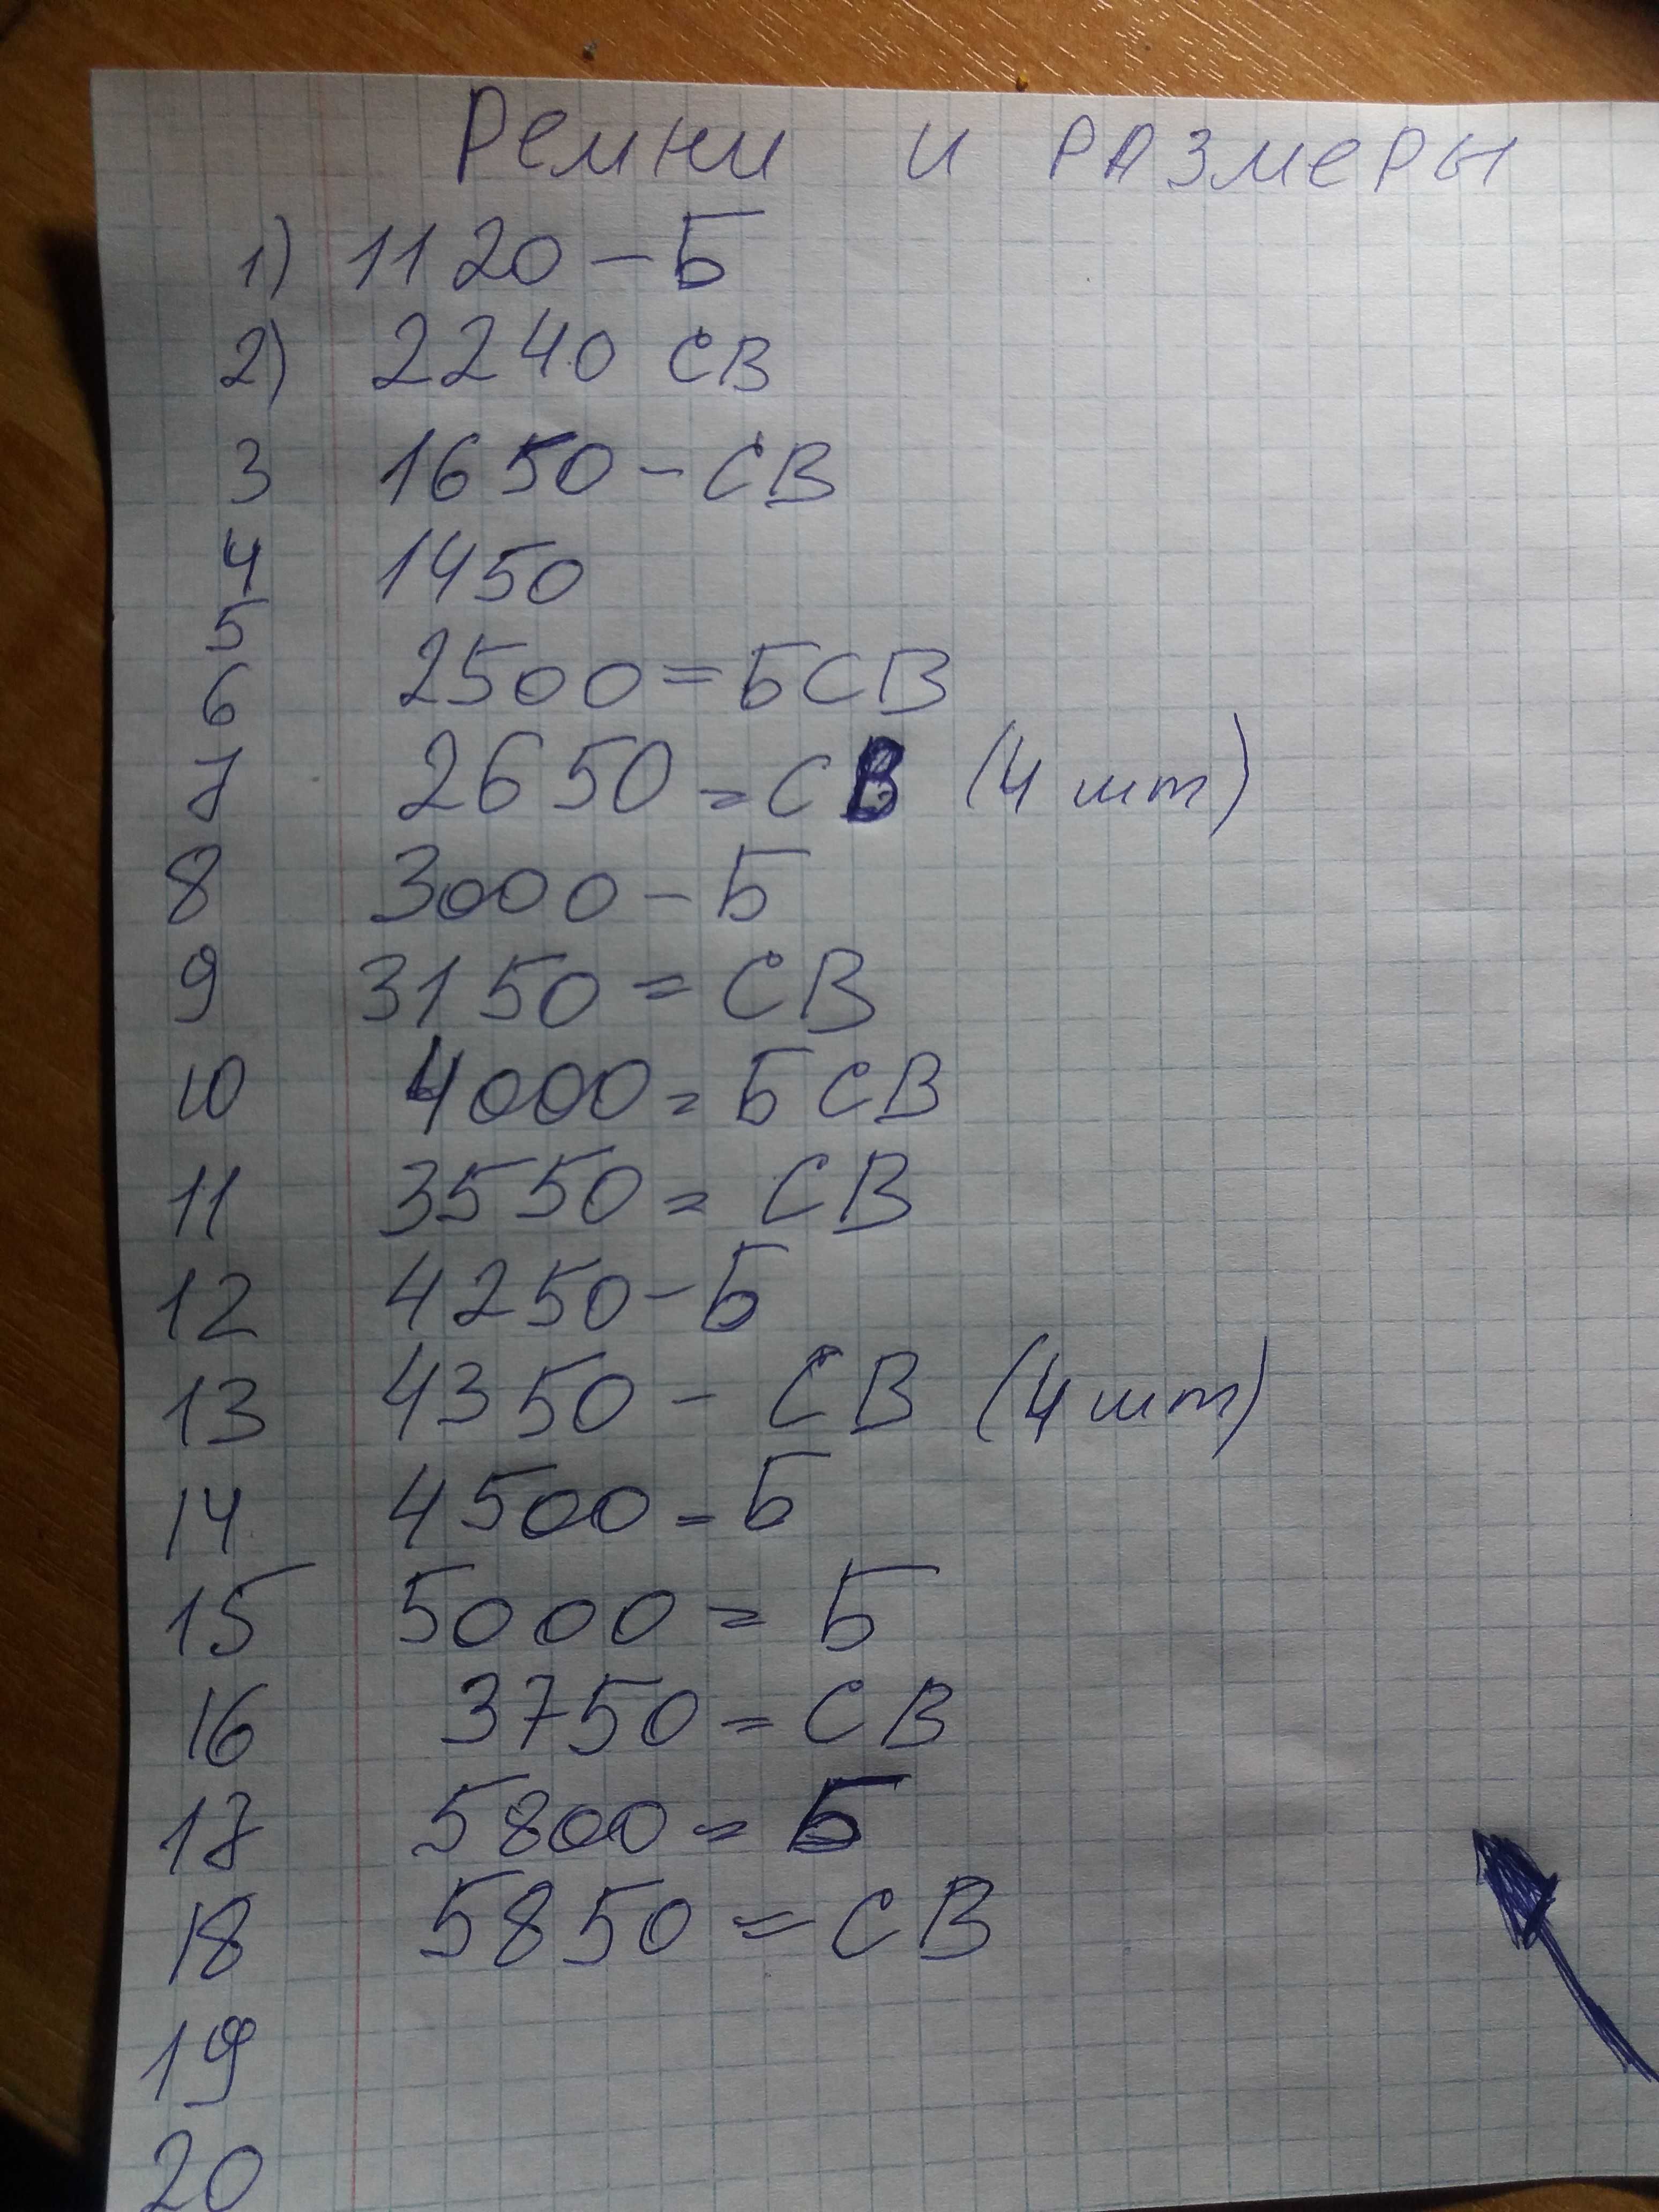 Ремни и размеры
1) 1120 – Б
2) 2240 СВ
3 1650 – СВ
4 1450
5
6 2500 = БСВ
7 2650 = СВ (4 шт)
8 3000 – Б
9 3150 = СВ
10 4000 = БСВ
11 3550 = СВ
12 4250 – Б
13 4350 – СВ (4 шт)
14 4500 = Б
15 5000 = Б
16 3750 = СВ
17 5800 = Б
18 5850 = СВ
19
20